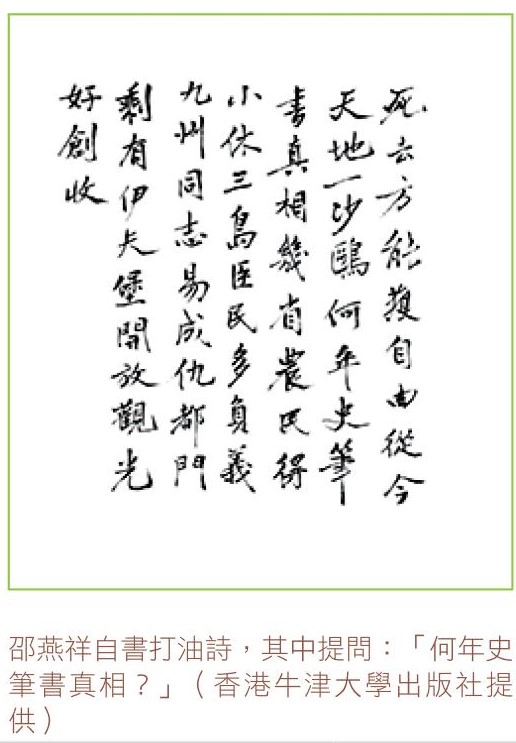 死去方能獲自由從今
天地一沙鷗何年史筆
書真相幾省農民得
小休三島臣民多負義
九州同志易成仇都門
剩有伊夫堡開放觀光
好創收
邵燕祥自書打油詩，其中提問：「何年史
筆書真相？」（香港牛津大學出版社提
供）